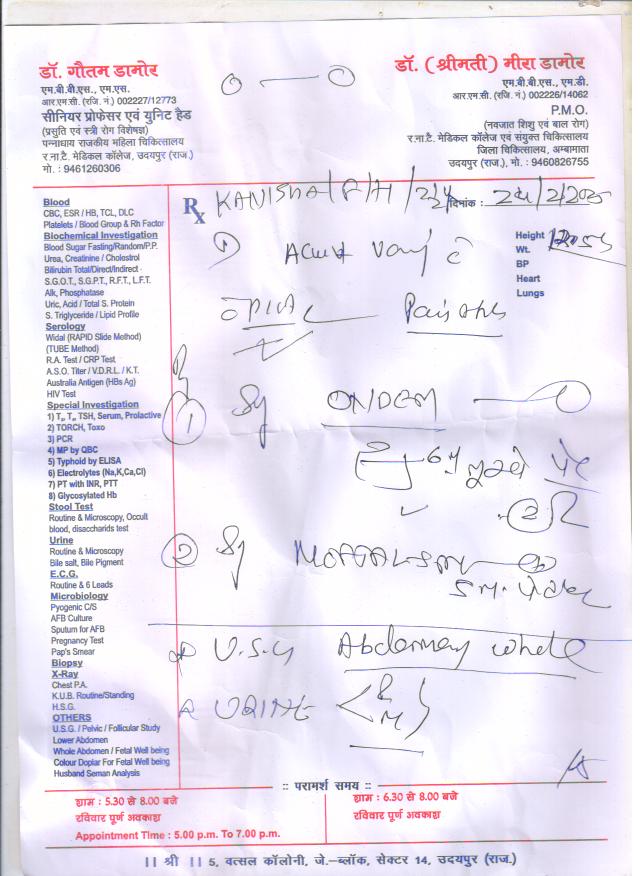 डॉ. गौतम डामोर
एम.बी.बी.एस., एम.एस.
आर.एम.सी. (रजि. नं.) 002227/12773
सीनियर प्रोफेसर एवं युनिट हैड
(प्रसुति एवं स्त्री रोग विशेषज्ञ)
पन्नाधाय राजकीय महिला चिकित्सालय
र.ना.टै. मेडिकल कॉलेज, उदयपुर (राज.)
मो. : 9461260306
डॉ. (श्रीमती) मीरा डामोर
एम.बी.बी.एस., एम.डी.
आर.एम.सी. (रजि. नं.) 002226/14062
P.M.O.
(नवजात शिशु एवं बाल रोग)
र.ना.टै. मेडिकल कॉलेज एवं संयुक्त चिकित्सालय
जिला चिकित्सालय, अम्बामाता
उदयपुर (राज.), मो. : 9460826755
Blood
CBC, ESR / HB, TCL, DLC
Platelets / Blood Group & Rh Factor
Biochemical Investigation
Blood Sugar Fasting/Random/P.P.
Urea, Creatinine / Cholestrol
Bilirubin Total/Direct/Indirect
S.G.O.T., S.G.P.T., R.F.T., L.F.T.
Alk, Phosphatase
Uric, Acid / Total S. Protein
S. Triglyceride / Lipid Profile
Serology
Widal (RAPID Slide Method)
(TUBE Method)
R.A. Test / CRP Test
A.S.O. Titer / V.D.R.L. / K.T.
Australia Antigen (HBs Ag)
HIV Test
Special Investigation
1) T₃, T₄, TSH, Serum, Prolactive
2) TORCH, Toxo
3) PCR
4) MP by QBC
5) Typhoid by ELISA
6) Electrolytes (Na,K,Ca,Cl)
7) PT with INR, PTT
8) Glycosylated Hb
Stool Test
Routine & Microscopy, Occult
blood, disaccharids test
Urine
Routine & Microscopy
Bile salt, Bile Pigment
E.C.G.
Routine & 6 Leads
Microbiology
Pyogenic C/S
AFB Culture
Sputum for AFB
Pregnancy Test
Pap's Smear
Biopsy
X-Ray
Chest P.A.
K.U.B. Routine/Standing
H.S.G.
OTHERS
U.S.G. / Pelvic / Follicular Study
Lower Abdomen
Whole Abdomen / Fetal Well being
Colour Doplar For Fetal Well being
Husband Seman Analysis
Rx KANISHA/F/H/ दिनांक : 24/2/2025
Height
Wt.
BP
Heart
Lungs
① Sy ONDEM
② Sy
U.S.G Abdomen whole
URINE < R/M >
:: परामर्श समय ::
शाम : 5.30 से 8.00 बजे
रविवार पूर्ण अवकाश
Appointment Time : 5.00 p.m. To 7.00 p.m.
शाम : 6.30 से 8.00 बजे
रविवार पूर्ण अवकाश
|| श्री || 5, वत्सल कॉलोनी, जे.–ब्लॉक, सेक्टर 14, उदयपुर (राज.)